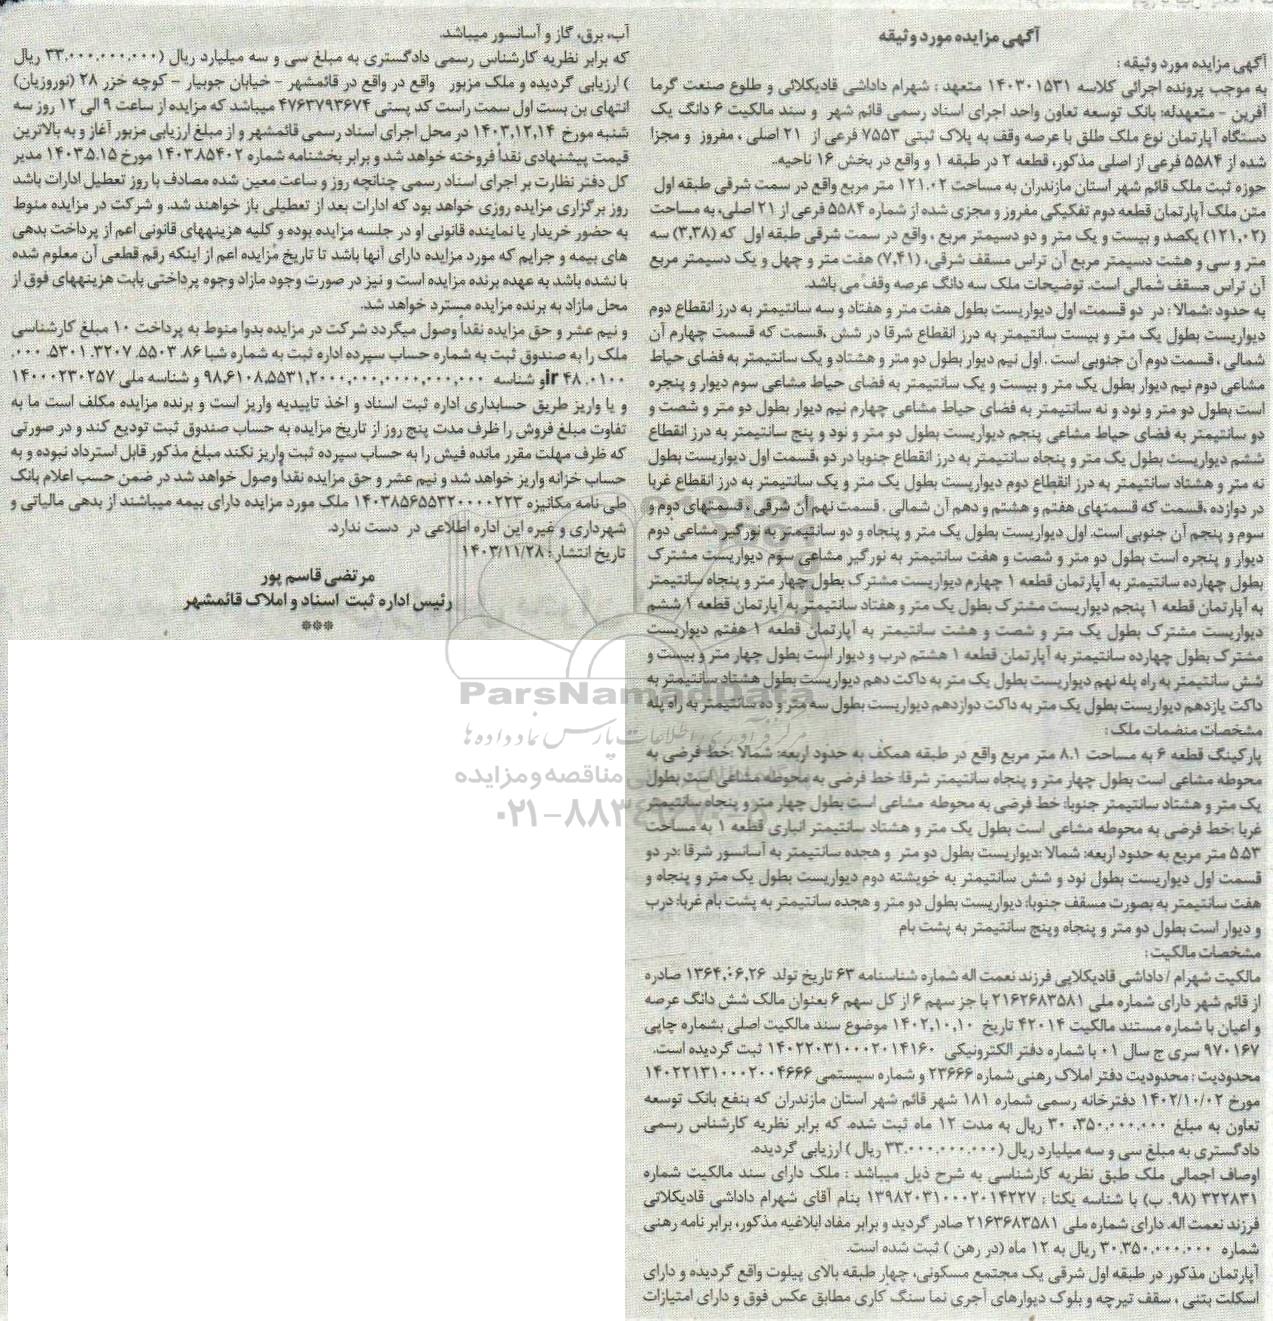 آگهی مزایده مورد وثیقه
آگهی مزایده مورد وثیقه :
به موجب پرونده اجرائی کلاسه ۱۴۰۳۰۱۵۳۱ متعهد : شهرام داداشی قادیکلائی و طلوع صنعت گرما
آفرین - متعهدله: بانک توسعه تعاون واحد اجرای اسناد رسمی قائم شهر و سند مالکیت ۶ دانگ یک
دستگاه آپارتمان نوع ملک طلق با عرصه وقف به پلاک ثبتی ۷۵۵۳ فرعی از ۲۱ اصلی ، مفروز و مجزا
شده از ۵۵۸۴ فرعی از اصلی مذکور، قطعه ۲ در طبقه ۱ و واقع در بخش ۱۶ ناحیه..
حوزه ثبت ملک قائم شهر استان مازندران به مساحت ۱۲۱.۰۲ متر مربع واقع در سمت شرقی طبقه اول
متن ملک آپارتمان قطعه دوم تفکیکی مفروز و مجزی شده از شماره ۵۵۸۴ فرعی از ۲۱ اصلی، به مساحت
(۱۲۱,۰۲) یکصد و بیست و یک متر و دو دسیمتر مربع ، واقع در سمت شرقی طبقه اول که (۳,۳۸) سه
متر و سی و هشت دسیمتر مربع آن تراس مسقف شرقی، (۷,۴۱) هفت متر و چهل و یک دسیمتر مربع
آن تراس مسقف شمالی است. توضیحات ملک سه دانگ عرصه وقف می باشد.
به حدود :شمالا : در دو قسمت، اول دیواریست بطول هفت متر و هفتاد و سه سانتیمتر به درز انقطاع دوم
دیواریست بطول یک متر و بیست سانتیمتر به درز انقطاع شرقا در شش ،قسمت که قسمت چهارم آن
شمالی ، قسمت دوم آن جنوبی است . اول نیم دیوار بطول دو متر و هشتاد و یک سانتیمتر به فضای حیاط
مشاعی دوم نیم دیوار بطول یک متر و بیست و یک سانتیمتر به فضای حیاط مشاعی سوم دیوار و پنجره
است بطول دو متر و نود و نه سانتیمتر به فضای حیاط مشاعی چهارم نیم دیوار بطول دو متر و شصت و
دو سانتیمتر به فضای حیاط مشاعی پنجم دیواریست بطول دو متر و نود و پنج سانتیمتر به درز انقطاع
ششم دیواریست بطول یک متر و پنجاه سانتیمتر به درز انقطاع جنوبا در دو ،قسمت اول دیواریست بطول
نه متر و هشتاد سانتیمتر به درز انقطاع دوم دیواریست بطول یک متر و یک سانتیمتر به درز انقطاع غربا
در دوازده ،قسمت که قسمتهای هفتم و هشتم و دهم آن شمالی . قسمت نهم آن شرقی ، قسمتهای دوم و
سوم و پنجم آن جنوبی است. اول دیواریست بطول یک متر و پنجاه و دو سانتیمتر به نورگیر مشاعی دوم
دیوار و پنجره است بطول دو متر و شصت و هفت سانتیمتر به نورگیر مشاعی سوم دیواریست مشترک
بطول چهارده سانتیمتر به آپارتمان قطعه ۱ چهارم دیواریست مشترک بطول چهار متر و پنجاه سانتیمتر
به آپارتمان قطعه ۱ پنجم دیواریست مشترک بطول یک متر و هفتاد سانتیمتر به آپارتمان قطعه ۱ ششم
دیواریست مشترک بطول یک متر و شصت و هشت سانتیمتر به آپارتمان قطعه ۱ هفتم دیواریست
مشترک بطول چهارده سانتیمتر به آپارتمان قطعه ۱ هشتم درب و دیوار است بطول چهار متر و بیست و
شش سانتیمتر به راه پله نهم دیواریست بطول یک متر به داکت دهم دیواریست بطول هشتاد سانتیمتر به
داکت یازدهم دیواریست بطول یک متر به داکت دوازدهم دیواریست بطول سه متر و ده سانتیمتر به راه پله
مشخصات منضمات ملک :
پارکینگ قطعه ۶ به مساحت ۸.۱ متر مربع واقع در طبقه همکف به حدود اربعه: شمالا :خط فرضی به
محوطه مشاعی است بطول چهار متر و پنجاه سانتیمتر شرقا: خط فرضی به محوطه مشاعی است بطول
یک متر و هشتاد سانتیمتر جنوبا: خط فرضی به محوطه مشاعی است بطول چهار متر و پنجاه سانتیمتر
غربا :خط فرضی به محوطه مشاعی است بطول یک متر و هشتاد سانتیمتر انباری قطعه ۱ به مساحت
۵.۵۳ متر مربع به حدود اربعه: شمالا :دیواریست بطول دو متر و هجده سانتیمتر به آسانسور شرقا :در دو
قسمت اول دیواریست بطول نود و شش سانتیمتر به خویشته دوم دیواریست بطول یک متر و پنجاه و
هفت سانتیمتر به بصورت مسقف جنوبا: دیواریست بطول دو متر و هجده سانتیمتر به پشت بام غربا: درب
و دیوار است بطول دو متر و پنجاه وپنج سانتیمتر به پشت بام
مشخصات مالکیت :
مالکیت شهرام / داداشی قادیکلایی فرزند نعمت اله شماره شناسنامه ۶۳ تاریخ تولد ۱۳۶۴,۰۶,۲۶ صادره
از قائم شهر دارای شماره ملی ۲۱۶۲۶۸۳۵۸۱ با جز سهم ۶ از کل سهم ۶ بعنوان مالک شش دانگ عرصه
و اعیان با شماره مستند مالکیت ۴۲۰۱۴ تاریخ ۱۴۰۲,۱۰,۱۰ موضوع سند مالکیت اصلی بشماره چاپی
۹۷۰۱۶۷ سری ج سال ۰۱ با شماره دفتر الکترونیکی ۱۴۰۲۲۰۳۱۰۰۰۲۰۱۴۱۶۰ ثبت گردیده است.
محدودیت : محدودیت دفتر املاک رهنی شماره ۲۳۶۶۶ و شماره سیستمی ۱۴۰۲۲۱۳۱۰۰۰۲۰۰۴۶۶۶
مورخ ۱۴۰۲/۱۰/۰۲ دفترخانه رسمی شماره ۱۸۱ شهر قائم شهر استان مازندران که بنفع بانک توسعه
تعاون به مبلغ ۳۰,۳۵۰,۰۰۰,۰۰۰ ریال به مدت ۱۲ ماه ثبت شده. که برابر نظریه کارشناس رسمی
دادگستری به مبلغ سی و سه میلیارد ریال (۳۳.۰۰۰.۰۰۰.۰۰۰ ریال ) ارزیابی گردیده.
اوصاف اجمالی ملک طبق نظریه کارشناسی به شرح ذیل میباشد : ملک دارای سند مالکیت شماره
۳۲۲۸۳۱ (۹۸. ب) با شناسه یکتا : ۱۳۹۸۲۰۳۱۰۰۰۲۰۱۴۲۲۷ بنام آقای شهرام داداشی قادیکلائی
فرزند نعمت اله. دارای شماره ملی ۲۱۶۳۶۸۳۵۸۱ صادر گردید و برابر مفاد ابلاغیه مذکور، برابر نامه رهنی
شماره ۳۰.۳۵۰.۰۰۰.۰۰۰ ریال به ۱۲ ماه (در رهن ) ثبت شده است.
آپارتمان مذکور در طبقه اول شرقی یک مجتمع مسکونی، چهار طبقه بالای پیلوت واقع گردیده و دارای
اسکلت بتنی ، سقف تیرچه و بلوک دیوارهای آجری نما سنگ کاری مطابق عکس فوق و دارای امتیازات
آب، برق، گاز و آسانسور میباشد.
که برابر نظریه کارشناس رسمی دادگستری به مبلغ سی و سه میلیارد ریال (۳۳.۰۰۰.۰۰۰.۰۰۰ ریال
) ارزیابی گردیده و ملک مزبور واقع در واقع در قائمشهر - خیابان جویبار - کوچه خزر ۲۸ (نوروزیان)
انتهای بن بست اول سمت راست کد پستی ۴۷۶۳۷۹۳۶۷۴ میباشد که مزایده از ساعت ۹ الی ۱۲ روز سه
شنبه مورخ ۱۴۰۳,۱۲,۱۴ در محل اجرای اسناد رسمی قائمشهر و از مبلغ ارزیابی مزبور آغاز و به بالاترین
قیمت پیشنهادی نقداً فروخته خواهد شد و برابر بخشنامه شماره ۱۴۰۳.۸۵۴۰۲ مورخ ۱۴۰۳.۵.۱۵ مدیر
کل دفتر نظارت بر اجرای اسناد رسمی چنانچه روز و ساعت معین شده مصادف با روز تعطیل ادارات باشد
روز برگزاری مزایده روزی خواهد بود که ادارات بعد از تعطیلی باز خواهند شد. و شرکت در مزایده منوط
به حضور خریدار یا نماینده قانونی او در جلسه مزایده بوده و کلیه هزینههای قانونی اعم از پرداخت بدهی
های بیمه و جرایم که مورد مزایده دارای آنها باشد تا تاریخ مزایده اعم از اینکه رقم قطعی آن معلوم شده
با نشده باشد به عهده برنده مزایده است و نیز در صورت وجود مازاد وجوه پرداختی بابت هزینههای فوق از
محل مازاد به برنده مزایده مسترد خواهد شد.
و نیم عشر و حق مزایده نقداً وصول میگردد شرکت در مزایده بدوا منوط به پرداخت ۱۰ مبلغ کارشناسی
ملک را به صندوق ثبت به شماره حساب سپرده اداره ثبت به شماره شبا ۸۶. ۵۵۰۳. ۳۲۰۷. ۵۳۰۱. ۰۰۰.
۰۱۰۰. ۴۸ ir و شناسه ۹۸,۶۱۰۸,۵۵۳۱,۲۰۰۰,۰۰۰,۰۰۰۰,۰۰۰,۰۰۰ و شناسه ملی ۱۴۰۰۰۲۳۰۲۵۷
و یا واریز طریق حسابداری اداره ثبت اسناد و اخذ تاییدیه واریز است و برنده مزایده مکلف است ما به
تفاوت مبلغ فروش را ظرف مدت پنج روز از تاریخ مزایده به حساب صندوق ثبت تودیع کند و در صورتی
که ظرف مهلت مقرر مانده فیش را به حساب سپرده ثبت واریز نکند مبلغ مذکور قابل استرداد نبوده و به
حساب خزانه واریز خواهد شد و نیم عشر و حق مزایده نقداً وصول خواهد شد در ضمن حسب اعلام بانک
طی نامه مکانیزه ۱۴۰۳۸۵۶۵۵۳۲۰۰۰۰۲۲۳ ملک مورد مزایده دارای بیمه میباشند از بدهی مالیاتی و
شهرداری و غیره این اداره اطلاعی در دست ندارد.
تاریخ انتشار : ۱۴۰۳/۱۱/۲۸
مرتضی قاسم پور
رئیس اداره ثبت اسناد و املاک قائمشهر
***
ParsNamadData
مرکز فرآوری اطلاعات پارس نماد داده ها
پایگاه اطلاع رسانی مناقصه و مزایده
۰۲۱-۸۸۳۴۹۶۷۰-۵